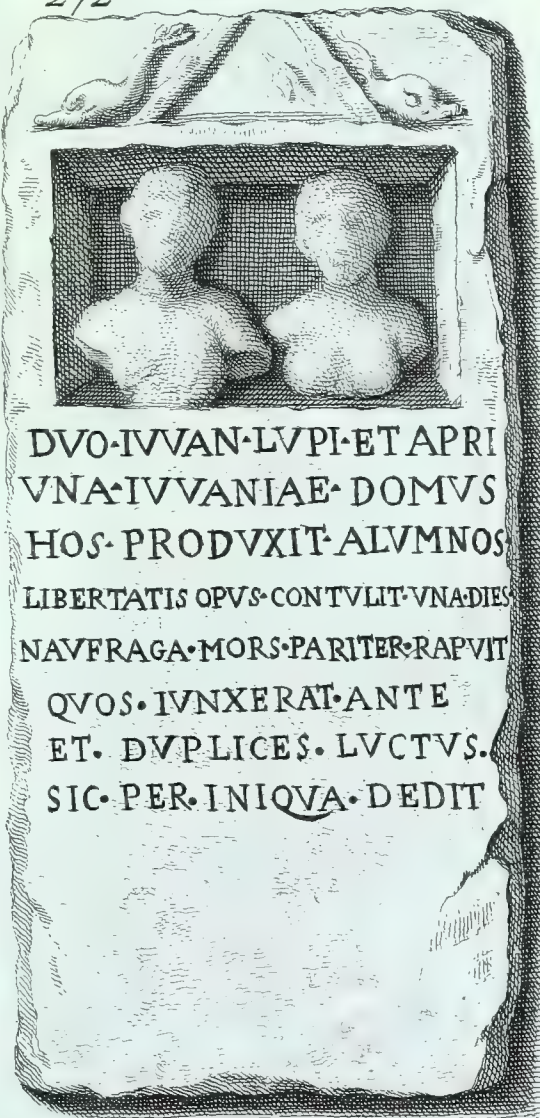 272
DVO·IVVAN·LVPI·ET APRI
VNA·IVVANIAE·DOMVS
HOS·PRODVXIT·ALVMNOS
LIBERTATIS OPVS·CONTVLIT·VNA·DIES
NAVFRAGA·MORS·PARITER·RAPVIT
QVOS·IVNXERAT·ANTE
ET·DVPLICES·LVCTVS·
SIC·PER·INIQVA·DEDIT